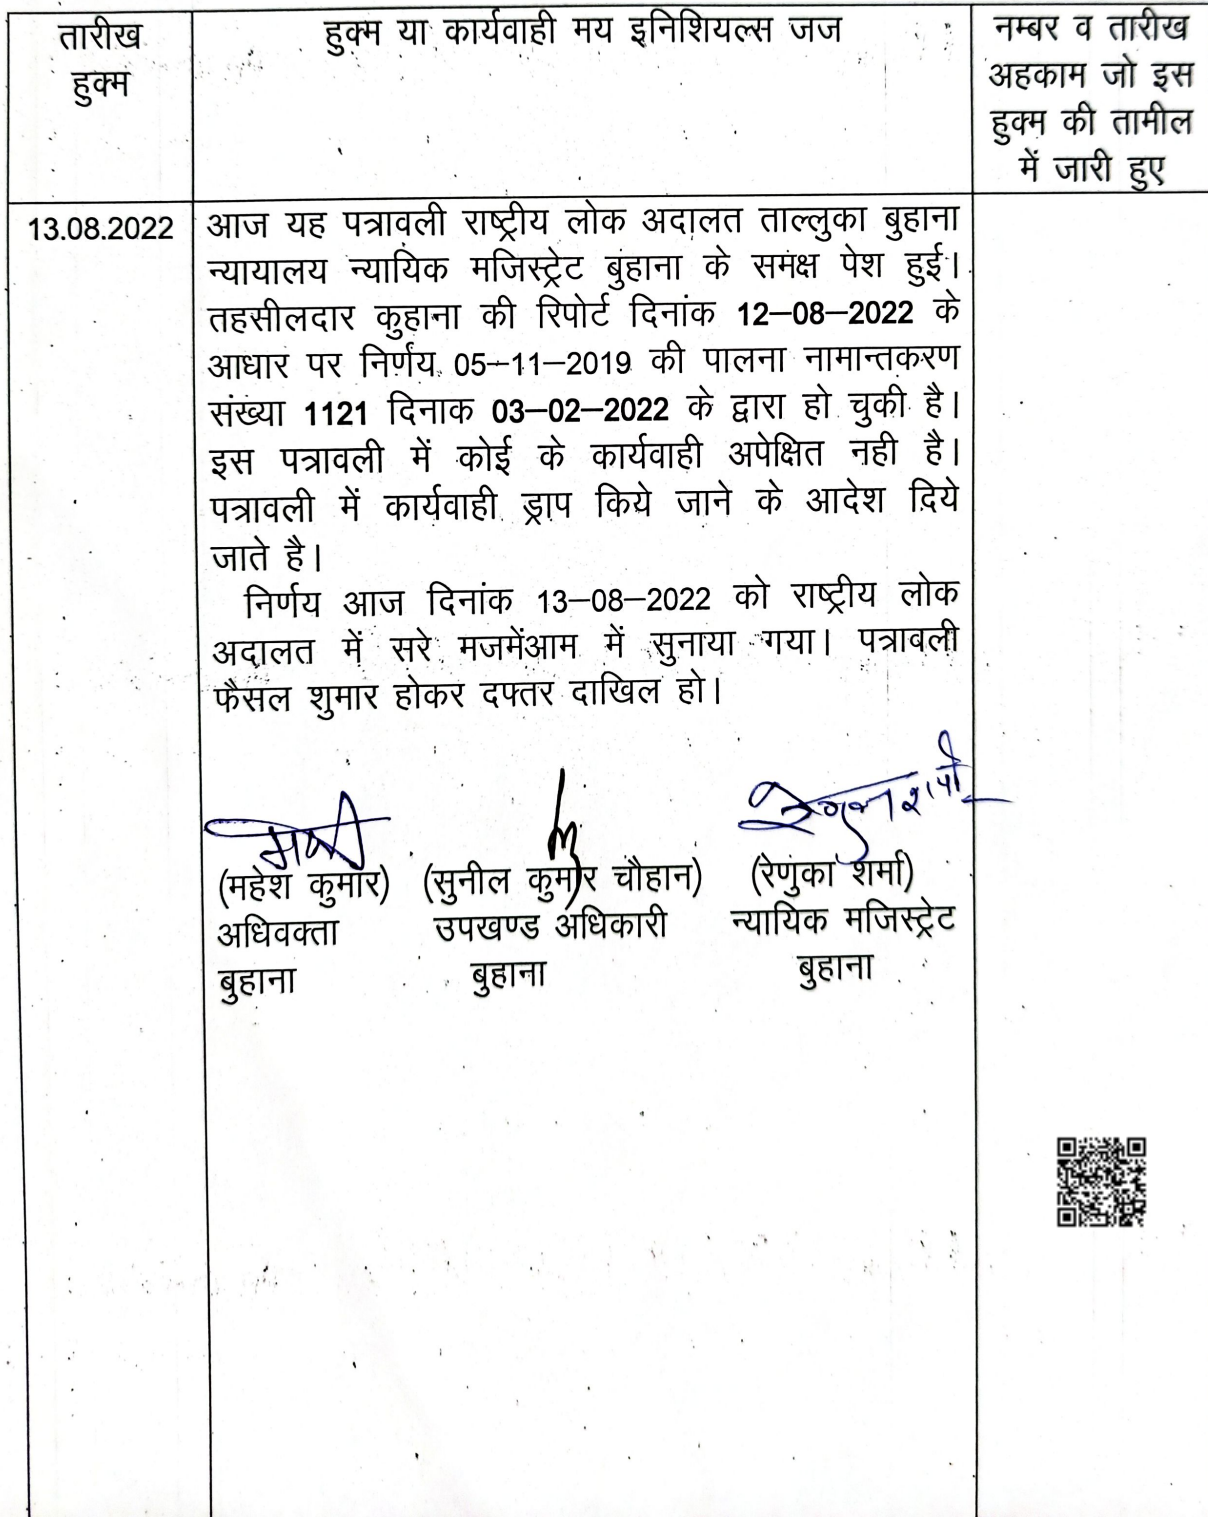 तारीख
हुक्म
हुक्म या कार्यवाही मय इनिशियल्स जज
नम्बर व तारीख
अहकाम जो इस
हुक्म की तामील
में जारी हुए
13.08.2022
आज यह पत्रावली राष्ट्रीय लोक अदालत ताल्लुका बुहाना
न्यायालय न्यायिक मजिस्ट्रेट बुहाना के समक्ष पेश हुई।
तहसीलदार कुहाना की रिपोर्ट दिनांक 12–08–2022 के
आधार पर निर्णय 05–11–2019 की पालना नामान्तकरण
संख्या 1121 दिनाक 03–02–2022 के द्वारा हो चुकी है।
इस पत्रावली में कोई के कार्यवाही अपेक्षित नही है।
पत्रावली में कार्यवाही ड्राप किये जाने के आदेश दिये
जाते है।
निर्णय आज दिनांक 13–08–2022 को राष्ट्रीय लोक
अदालत में सरे मजमेंआम में सुनाया गया। पत्राबली
फैसल शुमार होकर दफ्तर दाखिल हो।
(महेश कुमार) (सुनील कुमार चौहान) (रेणुका शर्मा)
अधिवक्ता उपखण्ड अधिकारी न्यायिक मजिस्ट्रेट
बुहाना बुहाना बुहाना